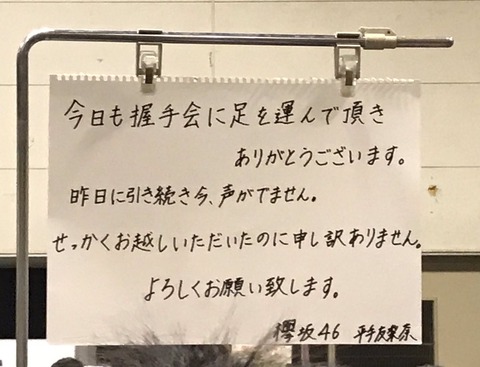 今日も握手会に足を運んで頂き
ありがとうございます。
昨日に引き続き今、声がでません。
せっかくお越しいただいたのに申し訳ありません。
よろしくお願い致します。
欅坂46 平手友梨奈